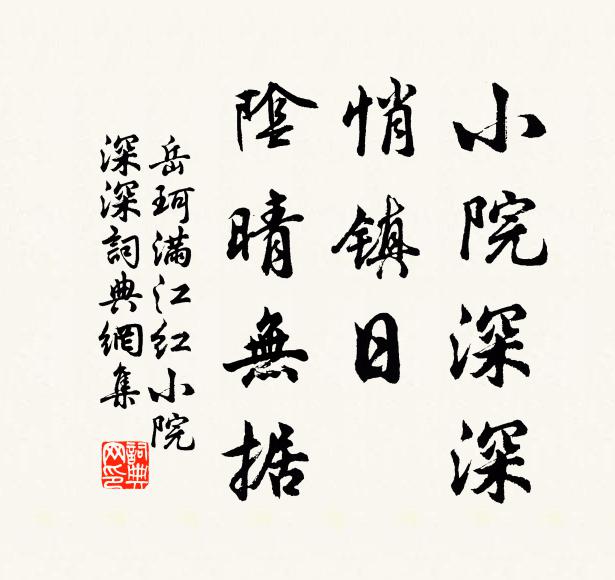 小院深深
悄镇日
陰晴無据
岳珂满江红小院
深深詞典網集
詞典网印